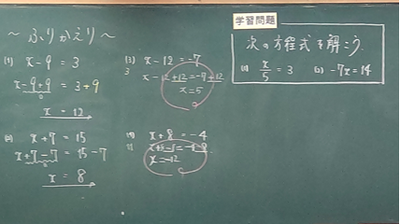 〜ふりかえり〜
(1) x-9 = 3
x-9+9 = 3+9
x = 12
(2) x+7 = 15
x+7-7 = 15-7
x = 8
(3) x-12 = -7
x-12+12 = -7+12
x = 5
(4) x+8 = -4
x+8-8 = -4-8
x = -12
学習問題
次の方程式を解こう。
(1) x/5 = 3 (2) -7x = 14